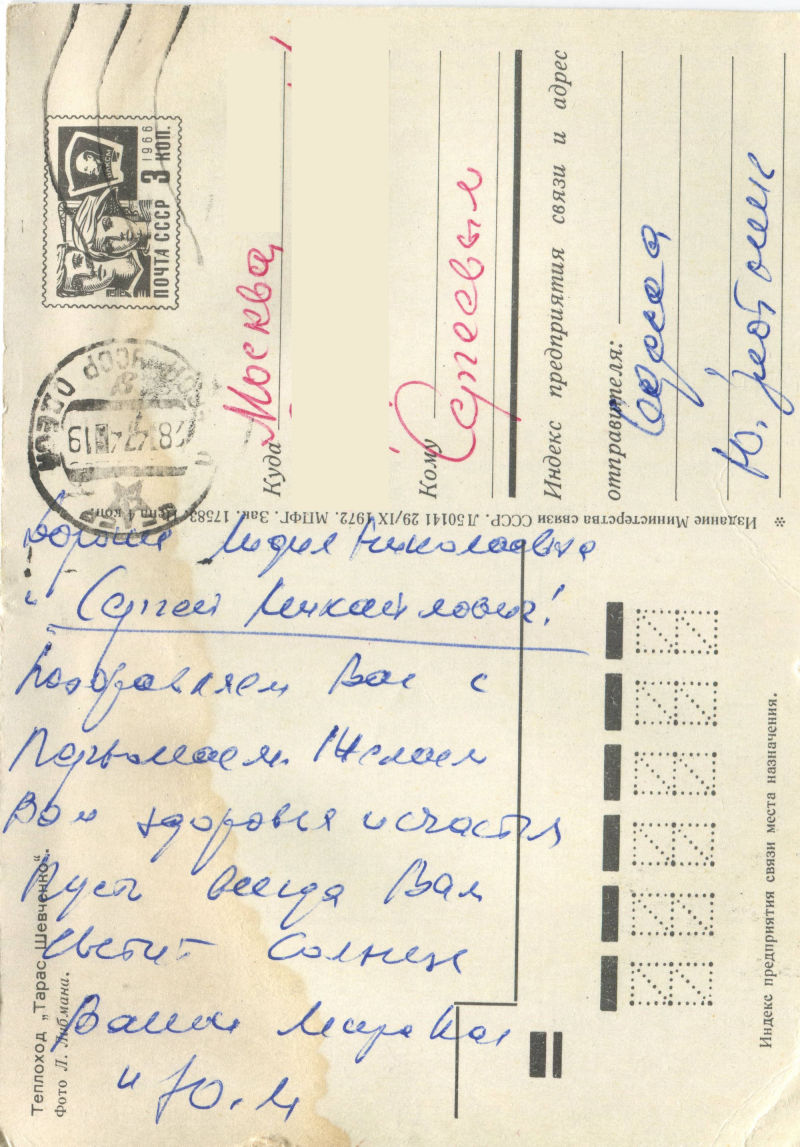 1966
3 КОП.
ПОЧТА СССР
ВЛКСМ
Куда Москва
Кому Сергеевым
Индекс предприятия связи и адрес
отправителя:
Одесса
* Издание Министерства связи СССР. Л50141 29/IX 1972. МПФГ. Зак. 17583. Цена 4 коп.
Дорогие Лидия Николаевна
и Сергей Михайлович!
Поздравляем Вас с
Первомаем. Желаем
Вам здоровья и счастья
Пусть всегда Вам
светит солнце
Ваши
и Ю.М
Теплоход „Тарас Шевченко“.
Фото Л. Либмана.
Индекс предприятия связи места назначения.